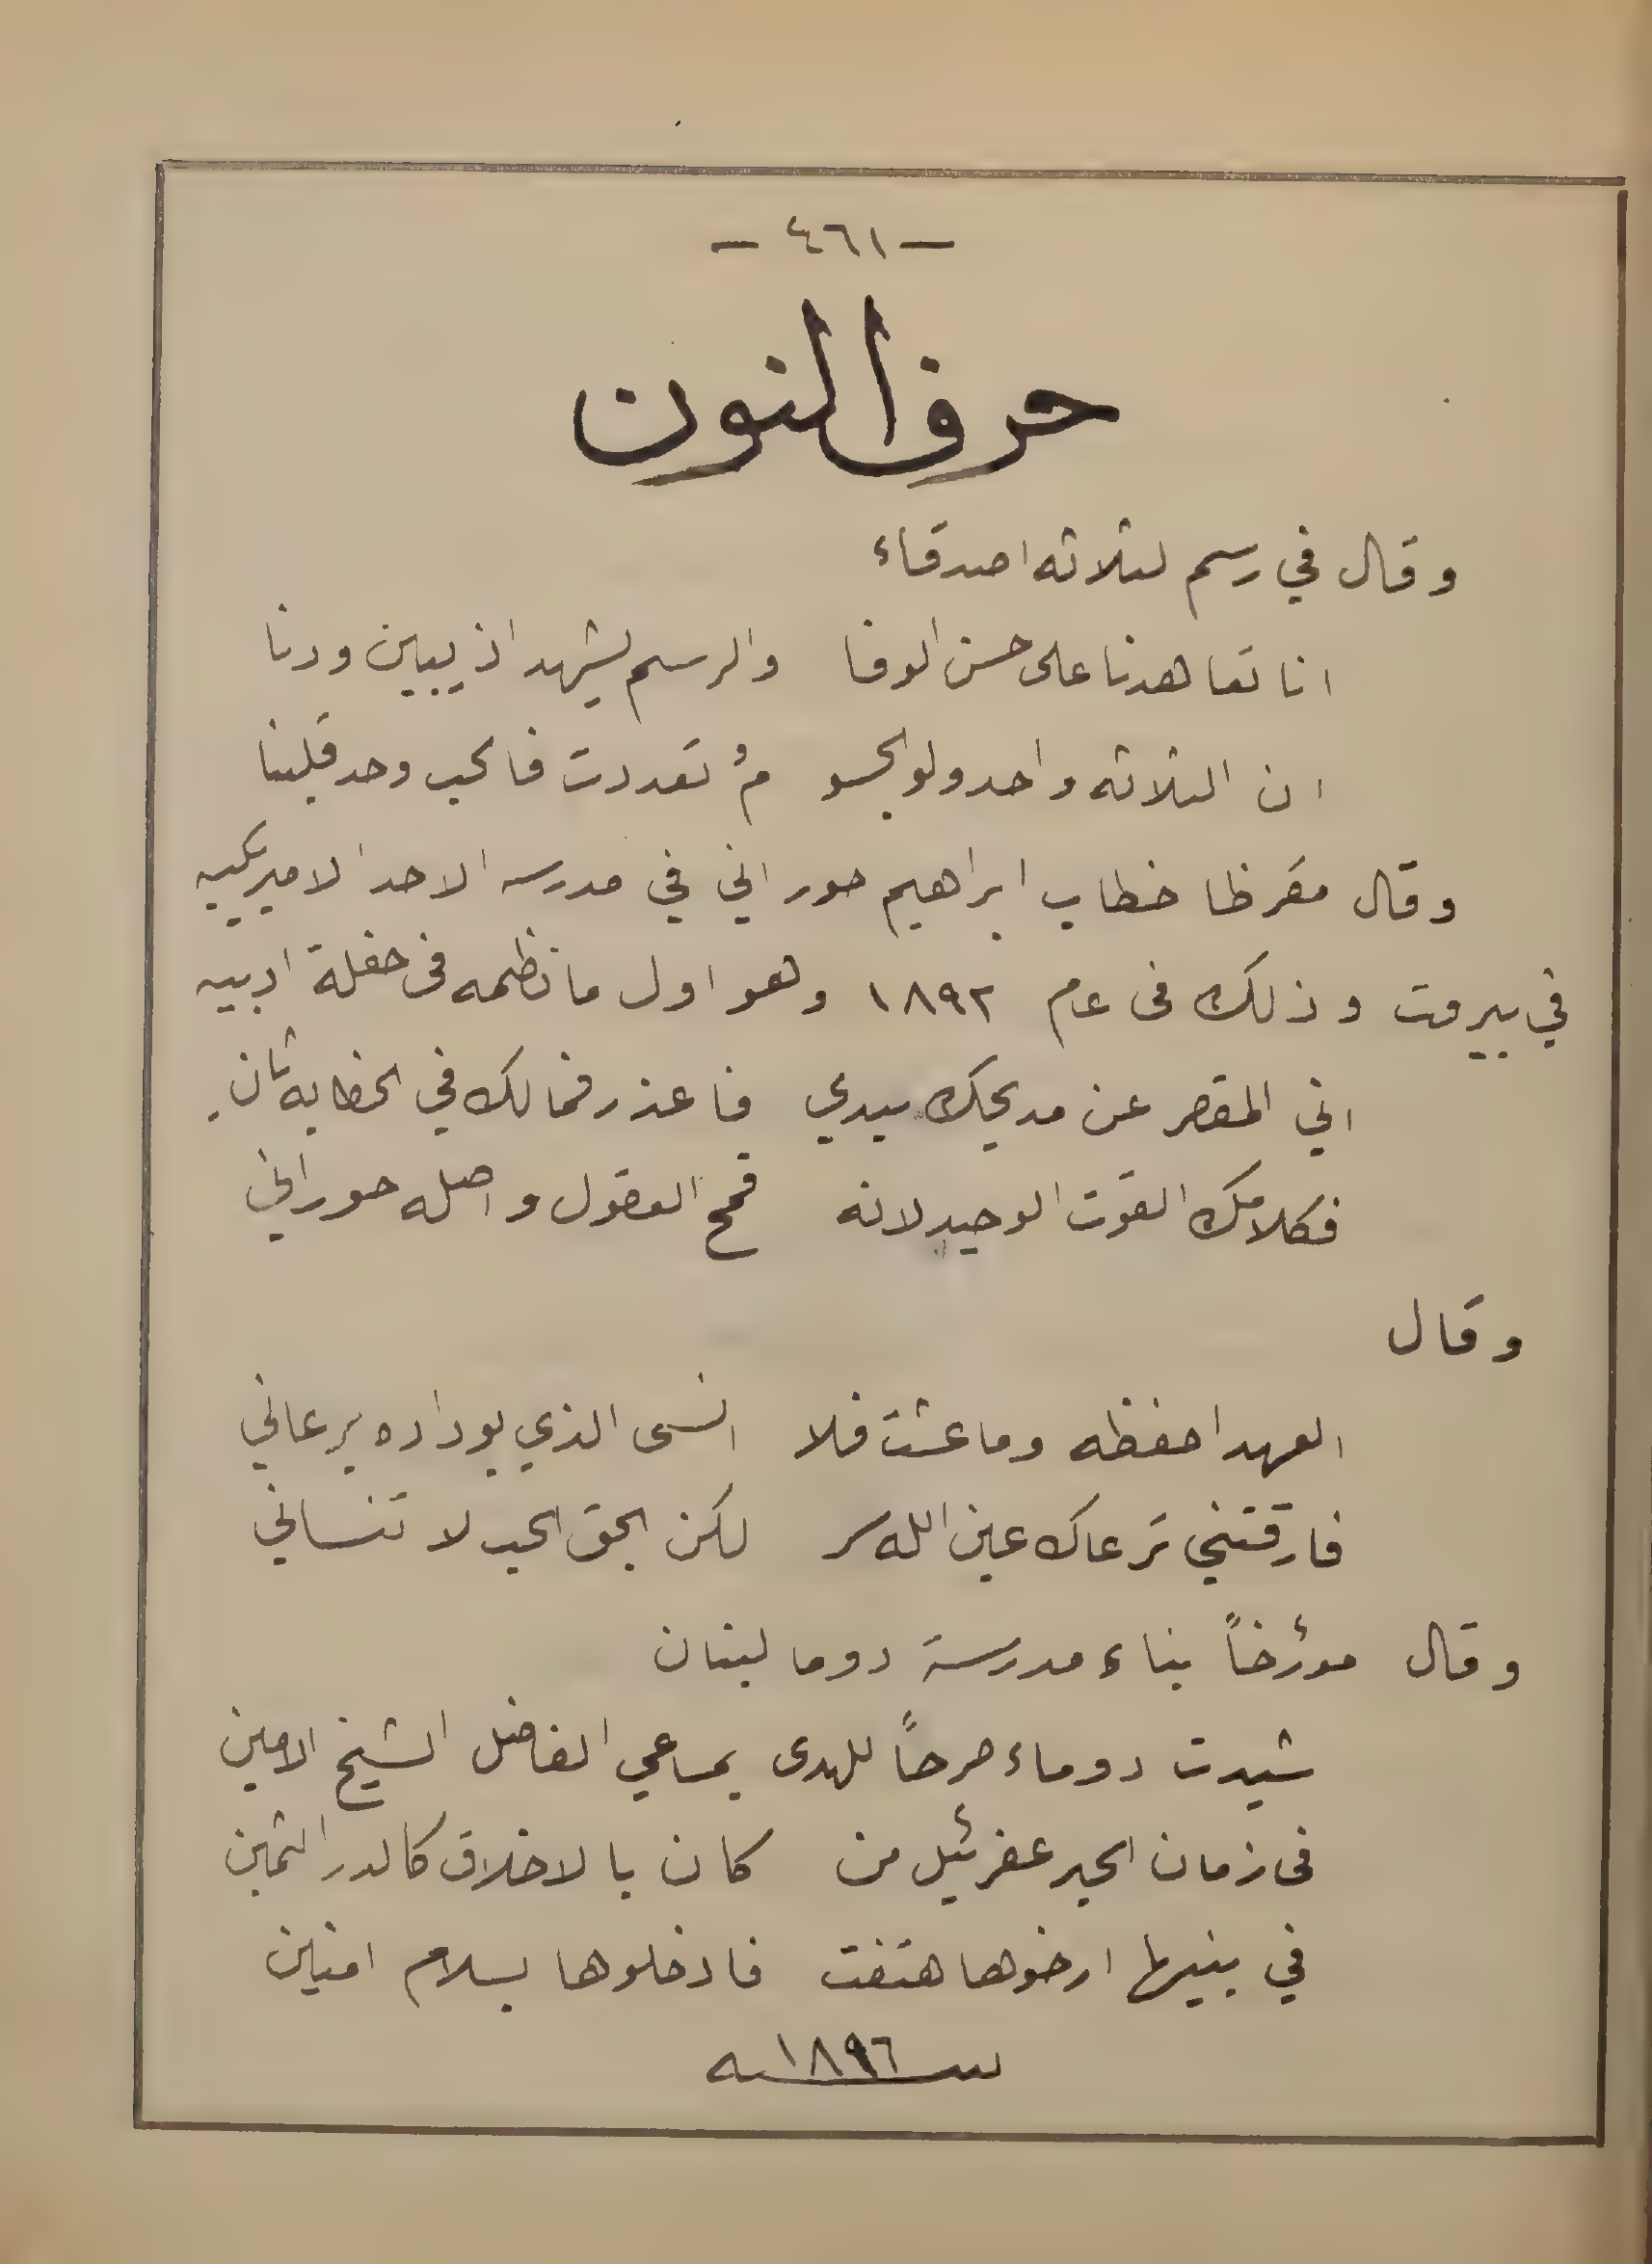 — ٤٦١ —
حرف النون
وقال في رسم لثلاثه اصدقاء
انا تعاهدنا على حسن الوفا والرسم يشهد اذ يبين ودنا
ان الثلاثه واحد ولو الجسو مُ تعددت فالحب وحد قلبنا
وقال مقرظا خطاب ابراهيم حوراني في مدرسه الاحد الاميركيه
في بيروت وذلك فى عام ١٨٩٢ وهو اول ما نظمه فى حفلة ادبيه
اني المقصر عن مديحك سيدي فاعذر فمالك في الخطابه ثان
فكلامك القوت الوحيد لانه قمح العقول واصله حوراني
وقال
العهد احفظه وما عشت فلا انسى الذي بوداده يرعاني
فارقتني ترعاك عين الله سر لكن بحق الحب لا تنساني
وقال مؤرخاً بناء مدرسة دوما لبنان
شيدت دوماء صرحاً للهدى بمساعي الفاضل الشيخ الامين
فى زمان الحبر غفرئيل من كان بالاخلاق كالدر الثمين
في بنيها ارخوها هتفت فادخلوها بسلام امنين
سنه ١٨٩٦